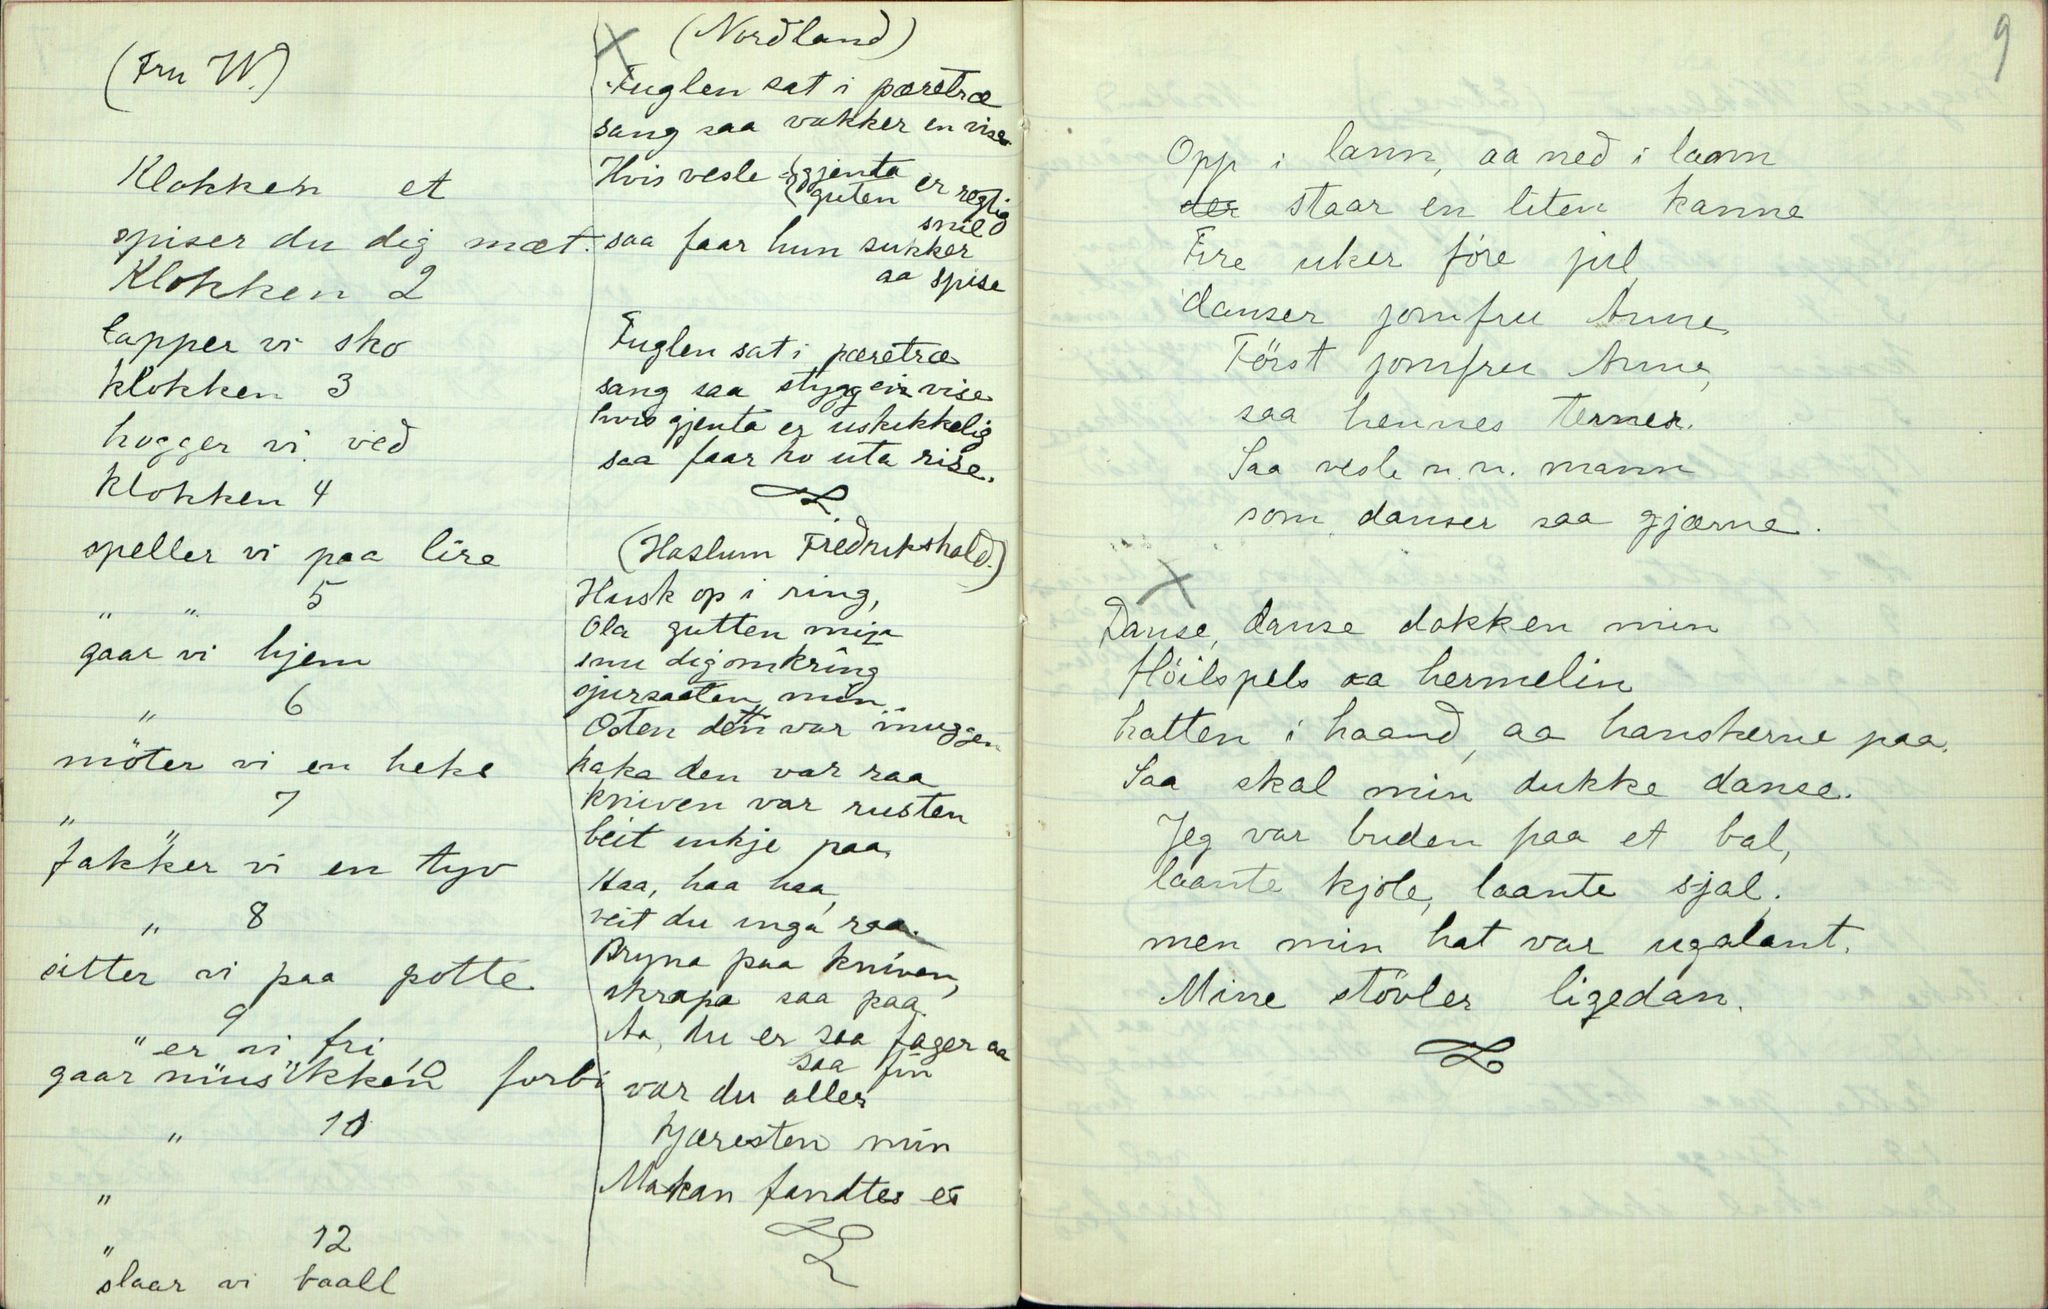 (Fru W.)
Klokken et
spiser du dig mæt.
Klokken 2
lapper vi sko
klokken 3
hogger vi ved
klokken 4
speller vi paa lire
" " 5
gaar vi hjem
" 6
möter vi en heks
" 7
fakker vi en tyv
" 8
sitter vi paa potte
" 9
er vi fri
" " 10
gaar musikken forbi
" 11
"
" 12
slaar vi baall
(Nordland)
Fuglen sat i pæretræ
sang saa vakker en vise
Hvis vesle gjenta
guten er regtig
snild
saa faar hun sukker
aa spise
Fuglen sat i pæretræ
sang saa stygg ein vise
hvis gjenta er uskikkelig
saa faar ho uta rise.
(Haslum Fredrikshald.)
Husk op i ring,
Ola gutten min
snu dig omkring
sjursaaten min
Osten den var muggen
kaka den var raa
kniven var rusten
beit inkje paa,
Haa, haa haa,
veit du inga raa.
Bryna paa kniven,
skrapa saa paa
Aa, du er saa fager aa
saa fin
var du aller
kjæresten min
Makan fandtes ei
9
Opp i lann, aa ned i laam
der staar en liten kanne
Fire uker före jul
danser jomfru Anne
Först jomfru Anne,
saa hennes terner.
Saa vesle n.n. mann
som danser saa gjærne.
Danse, danse dokken min
Höilspels aa hermelin
hatten i haand, aa hanskerne paa.
Saa skal min dukke danse.
Jeg var buden paa et bal,
laante kjole, laante sjal,
men min hat var ugalant.
Mine stövler ligedan.